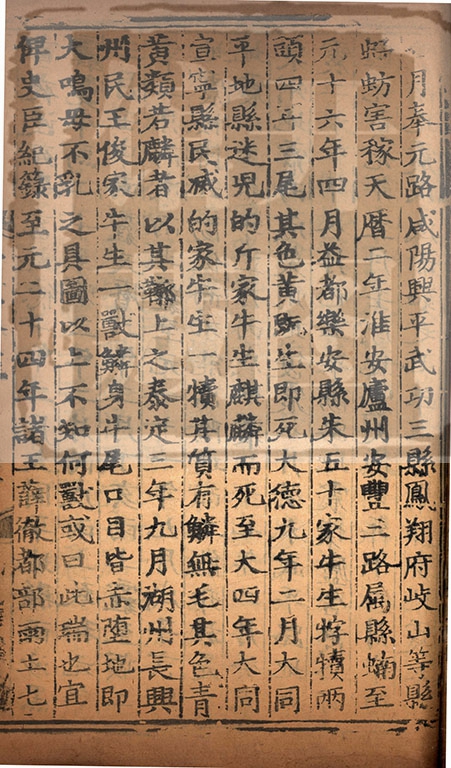 月奉元路咸陽興平武功三縣鳳翔府岐山等縣
虸蚄害稼天曆二年淮安廬州安豐三路属縣蝻至
元十六年四月益都樂安縣朱五十家牛生牸犢兩
頭四耳三尾其色黃既生即死大德九年二月大同
平地縣迷児的斤家牛生麒麟而死至大四年大同
宣寧縣民滅的家牛生一犢其質有鱗無毛其色青
黃類若麟者以其鞹上之泰定三年九月湖州長興
州民王俊家牛生一獸鱗身牛尾口目皆赤墮地即
大鳴母不乳之具圖以上不知何獸或曰此瑞也宜
俾史臣紀錄至元二十四年諸王薛徹都部雨土七